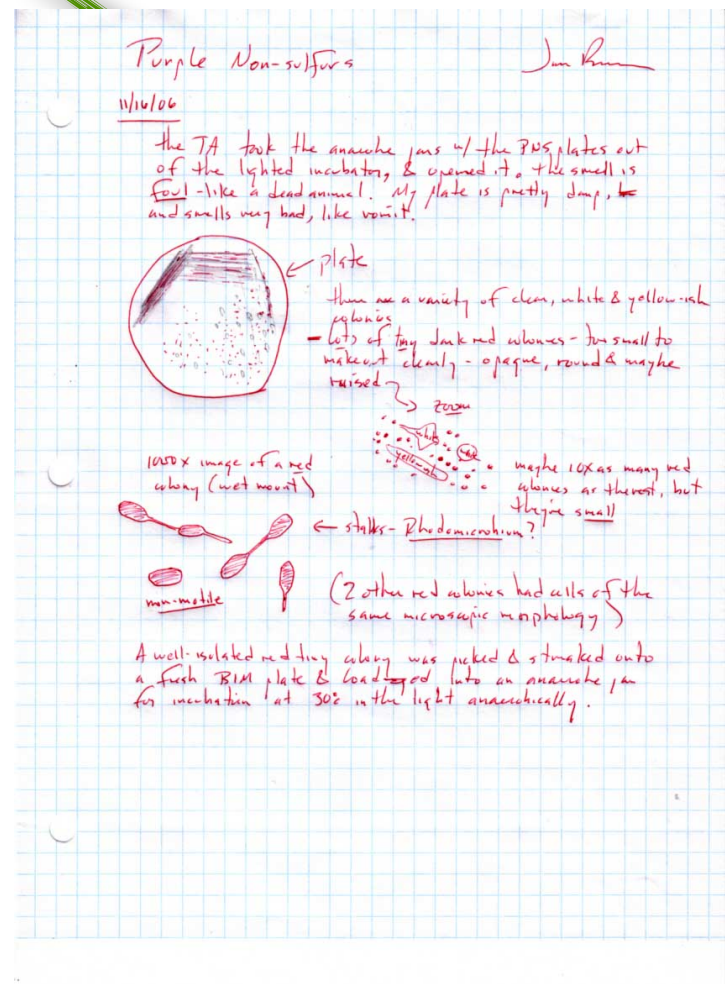 Purple Non-sulfurs
11/16/06
the TA took the anaerobe jars w/ the PNS plates out
of the lighted incubator, & opened it. the smell is
foul - like a dead animal. My plate is pretty damp,
and smells very bad, like vomit.
plate
there are a variety of clear, white & yellow-ish
colonies
- Lots of tiny dark red colonies - too small to
make out clearly - opaque, round & maybe
raised
zoom
white
yellowish
maybe 10x as many red
colonies as the rest, but
they're small
1000x image of a red
colony (wet mount)
← stalks - Rhodomicrobium?
non-motile
(2 other red colonies had cells of the
same microscopic morphology)
A well-isolated red tiny colony was picked & streaked onto
a fresh BIM plate & loaded into an anaerobe jar
for incubation at 30° in the light anaerobically.